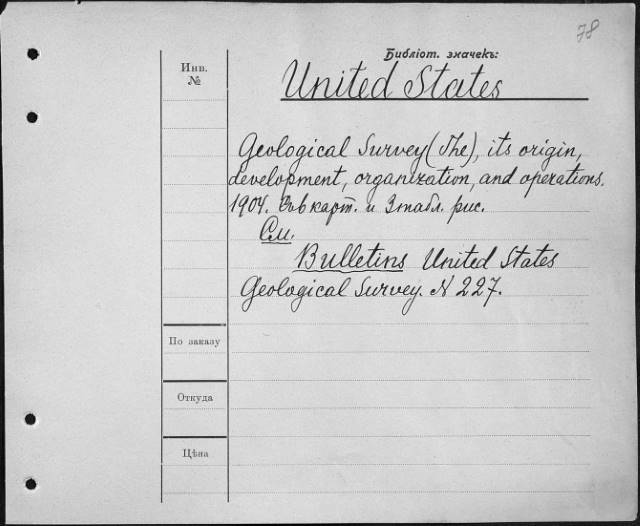 78
Библіот. значекъ:
Инв.
№
United States
Geological Survey (The), its origin,
development, organization, and operations.
1904. карт. и 3 табл. рис.
См.
Bulletins United States
Geological Survey. N 227.
По заказу
Откуда
Цѣна